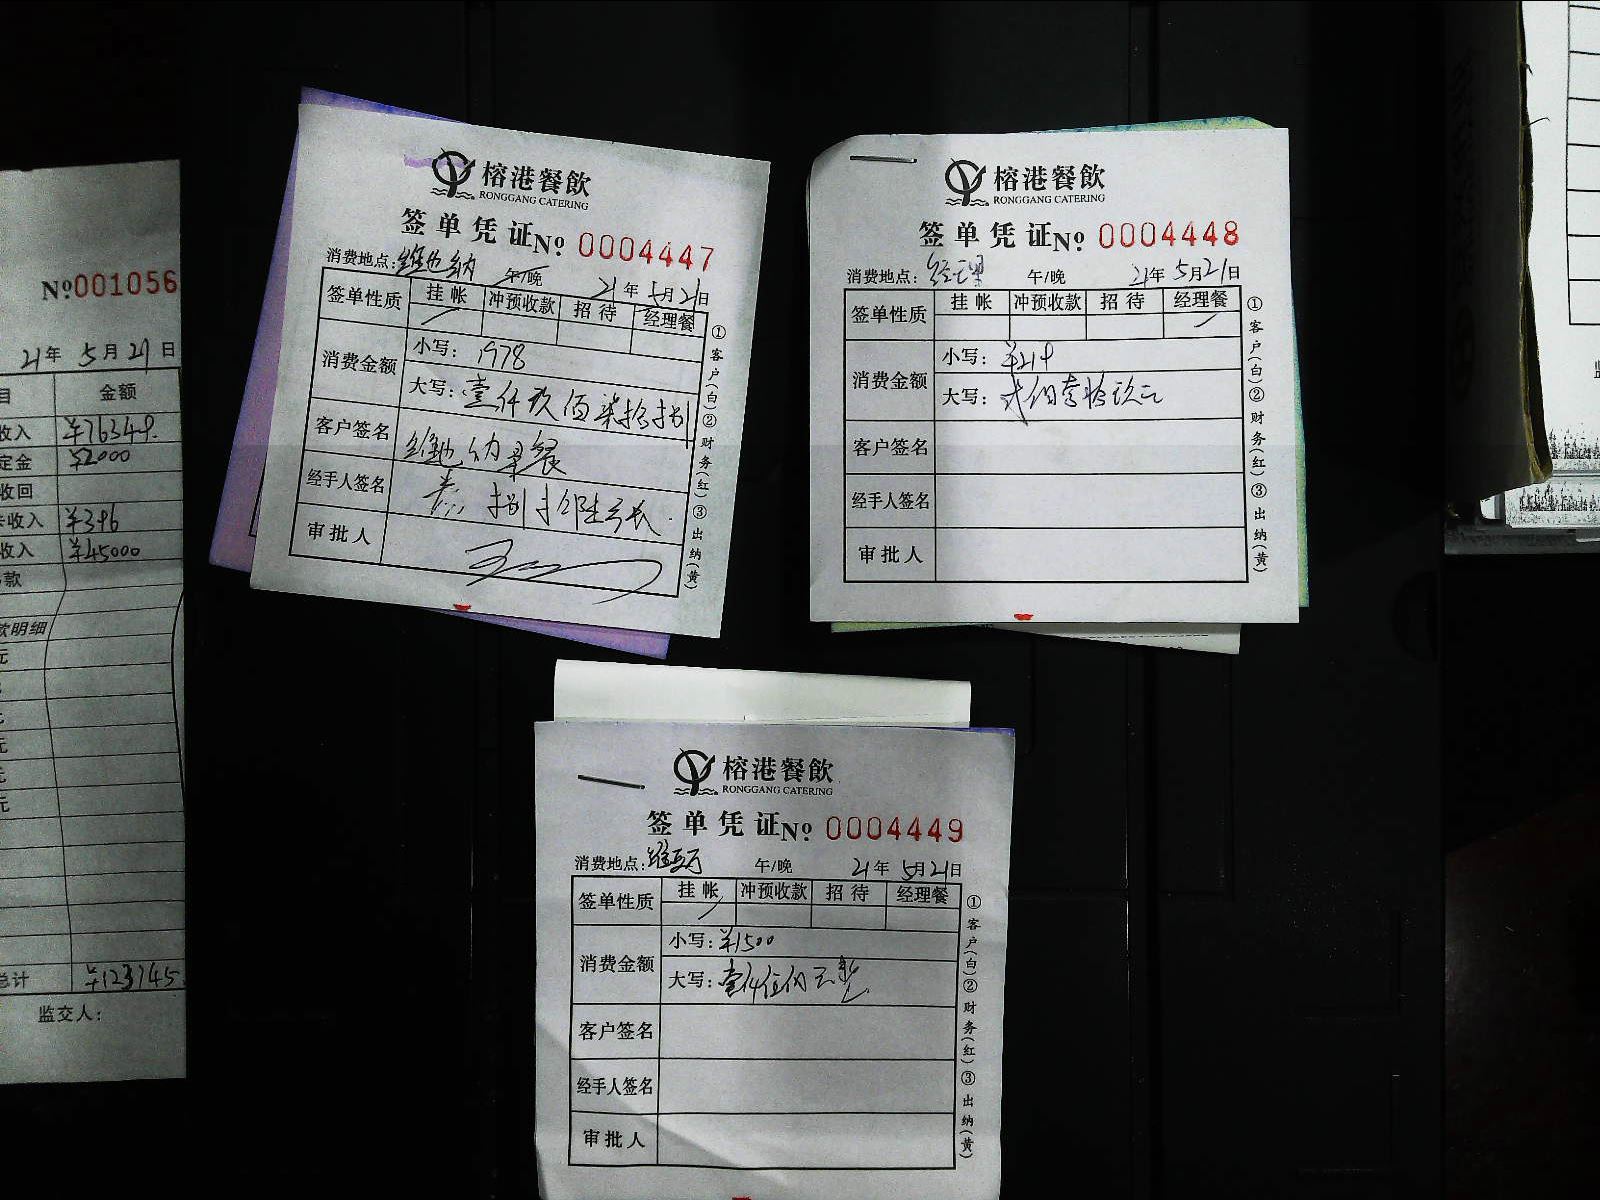 №001056
21年 5月21日
目 金额
收入 ¥76349.
定金 ¥2000
收回
卡收入 ¥396
收入 ¥45000
款
款明细
元
元
元
元
元
总计 ¥123745.
监交人：
榕港餐飲
RONGGANG CATERING
签单凭证№ 0004447
消费地点：维也纳 午/晚 21年5月21日
签单性质 挂帐 冲预收款 招待 经理餐
消费金额 小写：1978
大写：壹仟玖佰柒拾捌
客户签名
经手人签名
审批人
①客户(白)②财务(红)③出纳(黄)
榕港餐飲
RONGGANG CATERING
签单凭证№ 0004448
消费地点：经理 午/晚 21年5月21日
签单性质 挂帐 冲预收款 招待 经理餐
消费金额 小写：¥219
大写：弍佰壹拾玖元
客户签名
经手人签名
审批人
①客户(白)②财务(红)③出纳(黄)
榕港餐飲
RONGGANG CATERING
签单凭证№ 0004449
消费地点： 午/晚 21年5月21日
签单性质 挂帐 冲预收款 招待 经理餐
消费金额 小写：¥1500
大写：壹仟伍佰元整
客户签名
经手人签名
审批人
①客户(白)②财务(红)③出纳(黄)